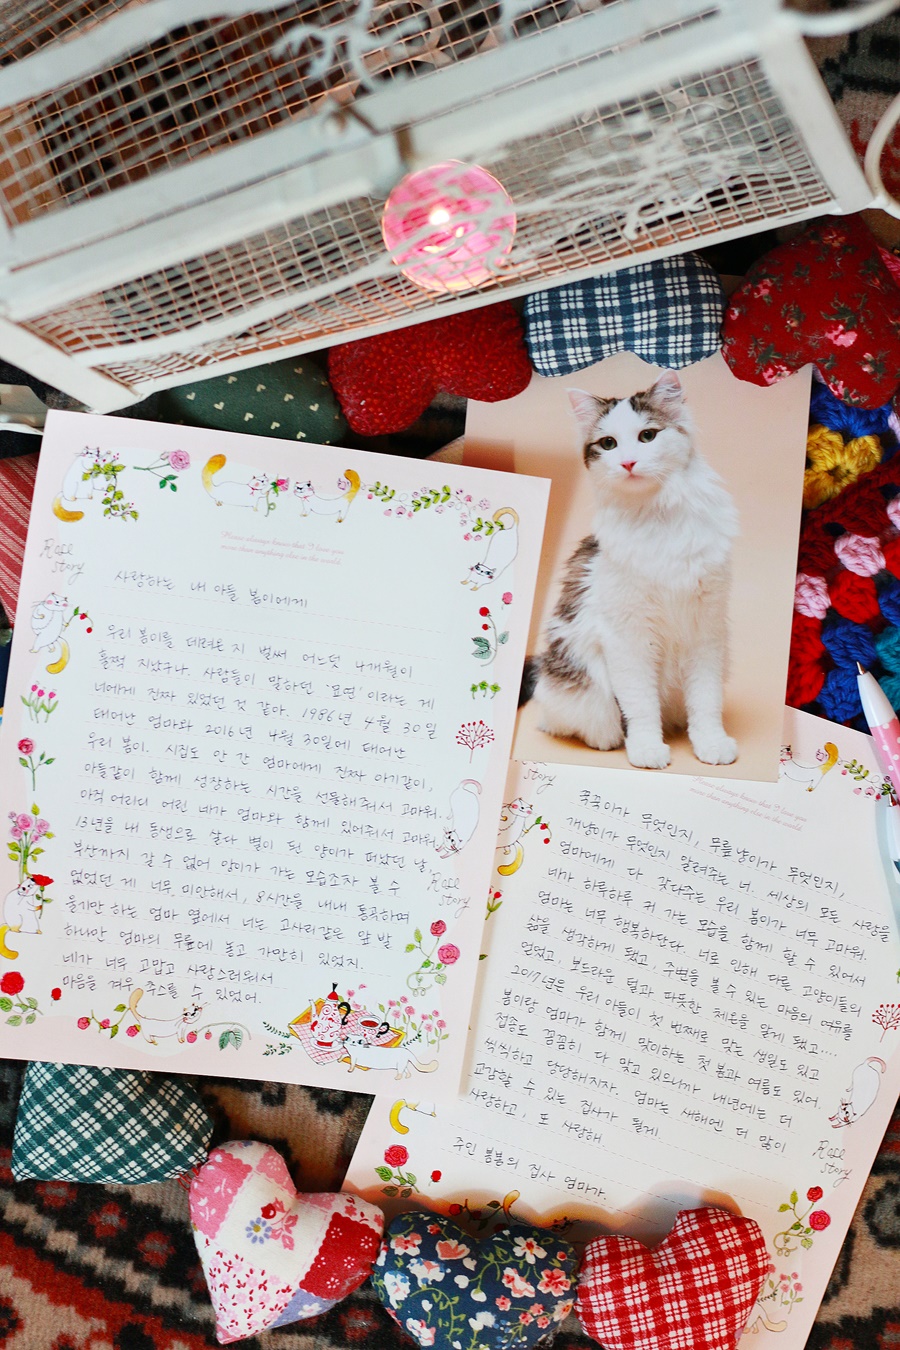 Please always know that I love you
more than anything else in the world.
Rose
story
사랑하는 내 아들 봄이에게
우리 봄이를 데려온 지 벌써 어느덧 4개월이
훌쩍 지났구나. 사람들이 말하던 '묘연'이라는 게
너에게 진짜 있었던 것 같아. 1986년 4월 30일
태어난 엄마와 2016년 4월 30일에 태어난
우리 봄이. 시집도 안 간 엄마에게 진짜 아기같이,
아들같이 함께 성장하는 시간을 선물해줘서 고마워.
아직 어리디 어린 네가 엄마와 함께 있어줘서 고마워.
13년을 내 동생으로 살다 별이 된 양이가 떠났던 날,
부산까지 갈 수 없어 양이가 가는 모습조차 볼 수
없었던 게 너무 미안해서, 8시간을 내내 통곡하며
울기만 하는 엄마 옆에서 너는 고사리같은 앞 발
하나만 엄마의 무릎에 놓고 가만히 있었지.
네가 너무 고맙고 사랑스러워서
마음을 겨우 추스를 수 있었어.
Rose
story
story
more than anything else in the world.
쭉쭉이가 무엇인지, 무릎냥이가 무엇인지,
개냥이가 무엇인지 알려주는 너. 세상의 모든 사랑을
엄마에게 다 갖다주는 우리 봄이가 너무 고마워.
네가 하루하루 커 가는 모습을 함께 할 수 있어서
엄마는 너무 행복하단다. 너로 인해 다른 고양이들의
삶을 생각하게 됐고, 주변을 볼 수 있는 마음의 여유를
얻었고, 보드라운 털과 따듯한 체온을 알게 됐고....
2017년은 우리 아들이 첫 번째로 맞는 생일도 있고
봄이랑 엄마가 함께 맞이하는 첫 봄과 여름도 있어.
접종도 꼼꼼히 다 맞고 있으니까 내년에는 더
씩씩하고 당당해지자. 엄마는 새해엔 더 많이
교감할 수 있는 집사가 될게
사랑하고, 또 사랑해
주인 봄봄의 집사 엄마가.
Rose
story